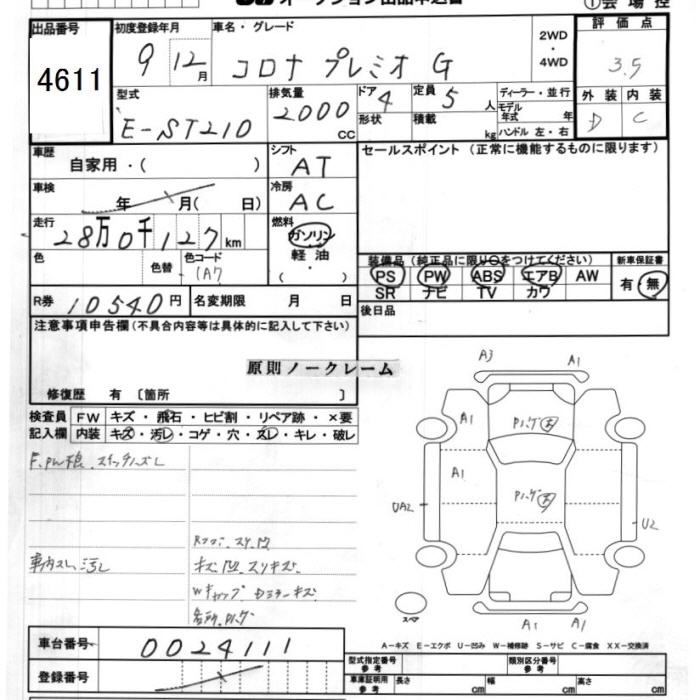 オークション出品申込書
①会場控
出品番号
4611
初度登録年月
9 12月
車名・グレード
コロナ プレミオ G
2WD
・
4WD
評価点
3.5
型式
E-ST210
排気量
2000
CC
ドア
4
形状
定員
5
人
積載
kg
ディーラー・並行
モデル
年式
年
ハンドル 左・右
外装
内装
D
C
車歴
自家用・( )
シフト
AT
セールスポイント (正常に機能するものに限ります)
車検
年 月( 日)
冷房
AC
走行
28万0千127km
燃料
ガソリン
軽油
・
( )
色
色替
色コード
(A7
装備品 (純正品に限り○をつけてください)
PS PW ABS エアB AW
SR ナビ TV カワ
新車保証書
有・無
R券
10540円
名変期限 月 日
後日品
注意事項申告欄 (不具合内容等は具体的に記入して下さい)
原則ノークレーム
修復歴 有 〔箇所 〕
検査員
記入欄
FW
キズ・飛石・ヒビ割・リペア跡・×要
内装
キズ・汚レ・コゲ・穴・スレ・キレ・破レ
F.PW不良.スイッチノズレ
車内スレ汚レ
キズ 凹 スリキズ
A3
A1
A1
A1
UA2
U2
A1
A1
スペア
A-キズ E-エクボ U-凹み W-補修跡 S-サビ C-腐食 XX-交換済
車台番号
0024111
登録番号
型式指定番号
参考
類別区分番号
参考
車庫証明用
参考
長さ cm
幅 cm
高さ cm